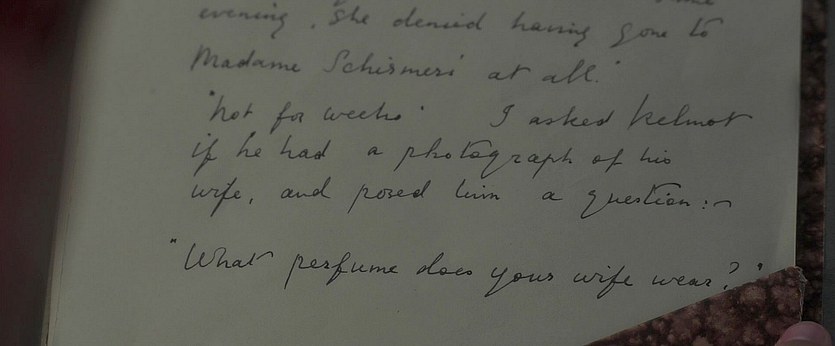 evening, she denied having gone to
Madame Schirmesi at all."
"Not for weeks" I asked Kelmot
if he had a photograph of his
wife, and posed him a question:-
"What perfume does your wife wear?"